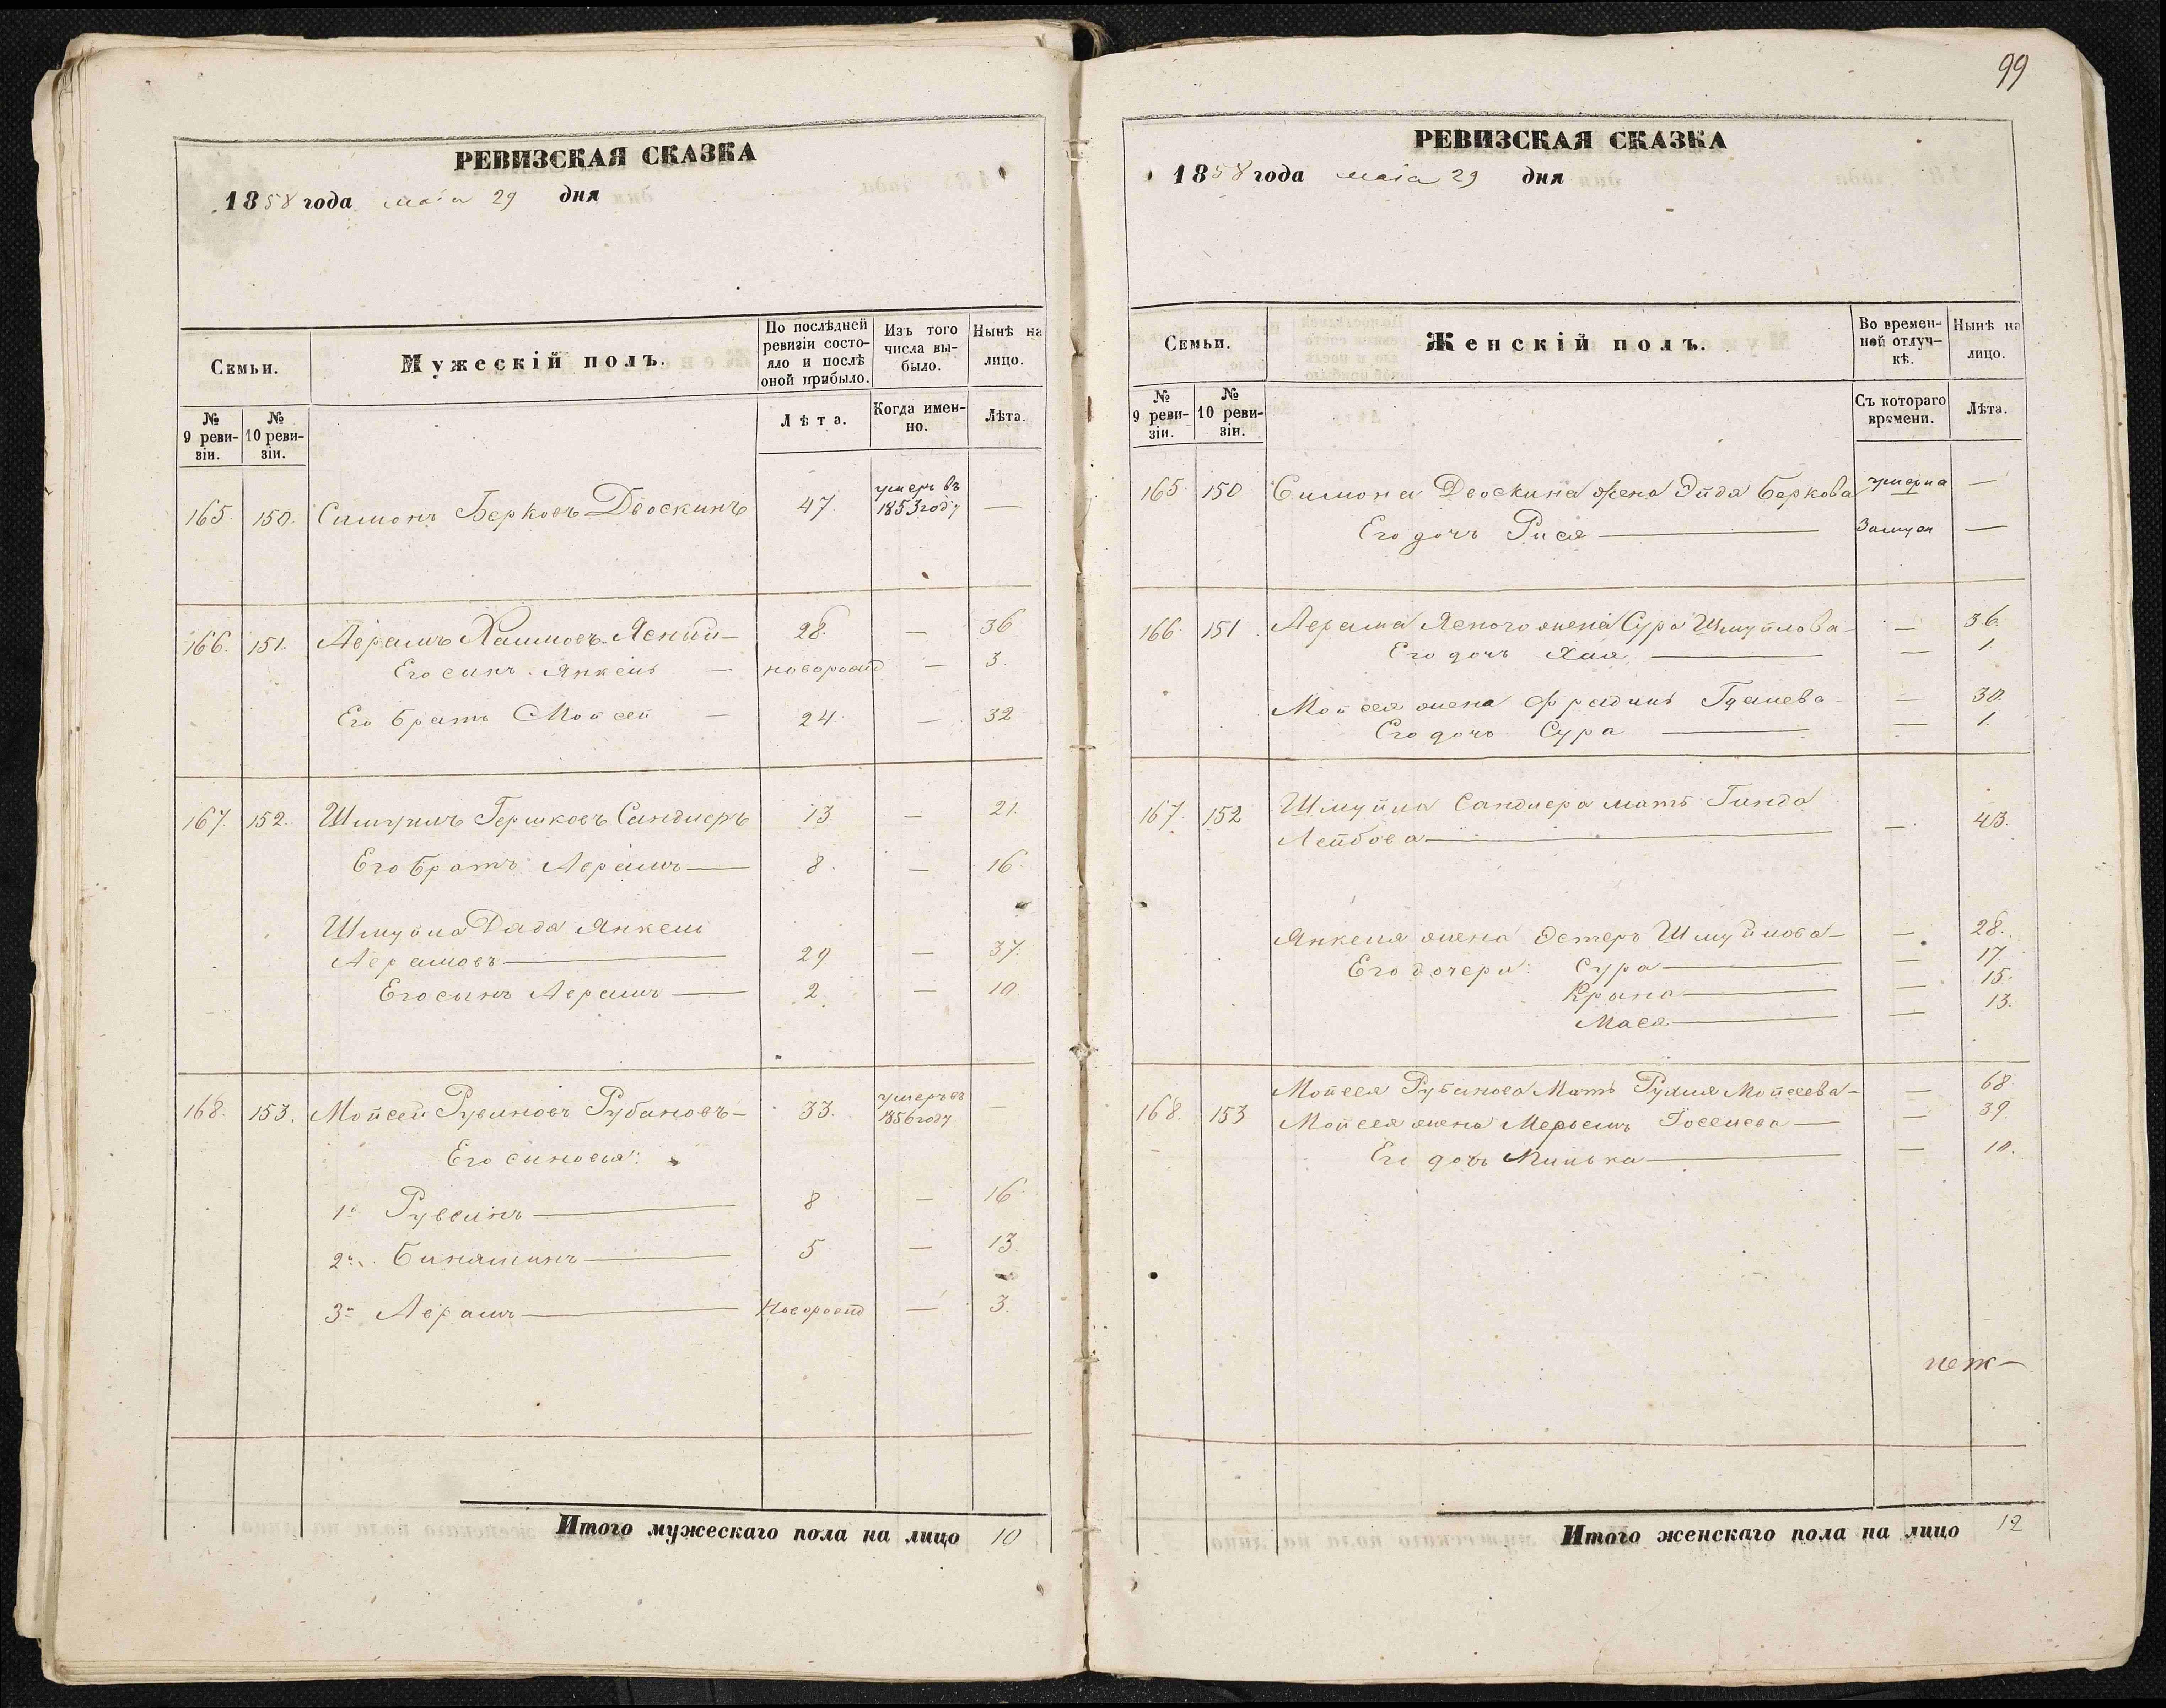 РЕВИЗСКАЯ СКАЗКА
1858 года маія 29 дня
Семьи.
Мужескій полъ.
По послѣдней ревизіи состояло и послѣ оной прибыло.
Изъ того числа выбыло.
Нынѣ на лицо.
№ 9 ревизіи.
№ 10 ревизіи.
Лѣта.
Когда именно.
Лѣта.
165. 150. Симонъ Берковъ Двоскинъ 47. умеръ въ 1853 году —
166. 151. Аврамъ Хаимовъ Ясний — 28. — 36
Его сынъ Янкель — новорожд — 3.
Его братъ Мойсей — 24 — 32
167. 152. Шмуилъ Гершковъ Сандлеръ 13 — 21.
Его братъ Аврамъ — 8. — 16
Шмуйла Дядя Янкель
Аврамовъ — 29 — 37.
Его сынъ Аврамъ — 2. — 10
168. 153. Мойсей Рувиновъ Рубановъ — 33. умеръ въ 1856 году —
Его сыновья:
1й Рувинъ — 8 — 16
2й Биняминъ — 5 — 13
3й Аврамъ — Новорожд — 3.
Итого мужескаго пола на лицо 10
99
РЕВИЗСКАЯ СКАЗКА
1858 года маіа 29 дня
Семьи.
Женскій полъ.
Во временной отлучкѣ.
Нынѣ на лицо.
№ 9 ревизіи.
№ 10 ревизіи.
Съ котораго времени.
Лѣта.
165 150 Симона Двоскина жена Эйдя Беркова умерла —
Его дочь Рися — Замуж —
166 151 Аврама Ясного жена Сура Шмуйлова — — 36
Его дочь Хая — — 1
Мойсея жена Фрадиль — — 30.
Его дочь Сура — — 1.
167 152 Шмуйла Сандлера мать Гинда
Лейбова — — 43.
Янкеля жена Эстеръ Шмуйлова — — 28.
Его дочери: Сура — — 17.
Крына — — 15.
Мася — — 13.
Мойсея Рубанова Мать Рухля Мойсеева — — 68
168. 153 Мойсея жена Меръемъ Іоселева — — 39.
Его дочь Минька — — 10.
Итого женскаго пола на лицо 12